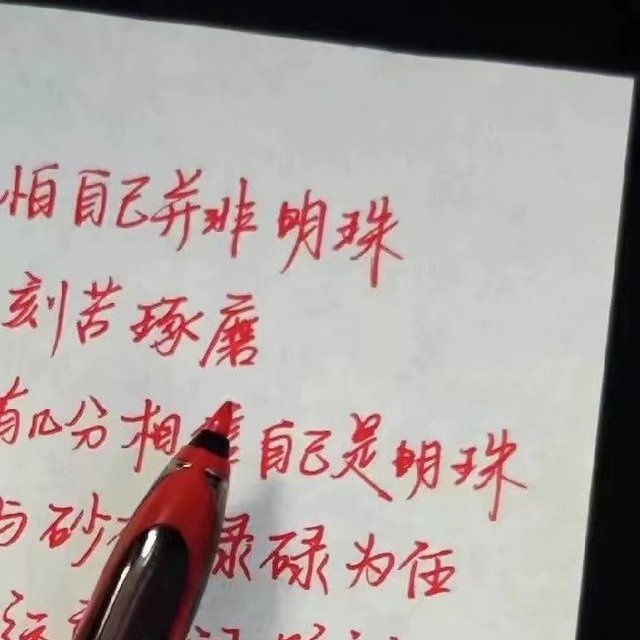 怕自己并非明珠
刻苦琢磨
有几分相 自己是明珠
与砂 碌碌为伍